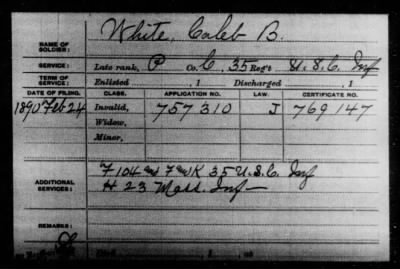 White, Caleb B.
NAME OF SOLDIER:
SERVICE: Late rank, P Co. C, 35 Reg't U.S.C. Inf
TERM OF SERVICE: Enlisted , 1 Discharged , 1
DATE OF FILING. CLASS. APPLICATION NO. LAW. CERTIFICATE NO.
1890 Feb 24 Invalid, 757310 J 769147
Widow,
Minor,
ADDITIONAL SERVICES: F 104 and F and K 35 U.S.C. Inf
H 23 Mass. Inf
REMARKS:
, 1 , at